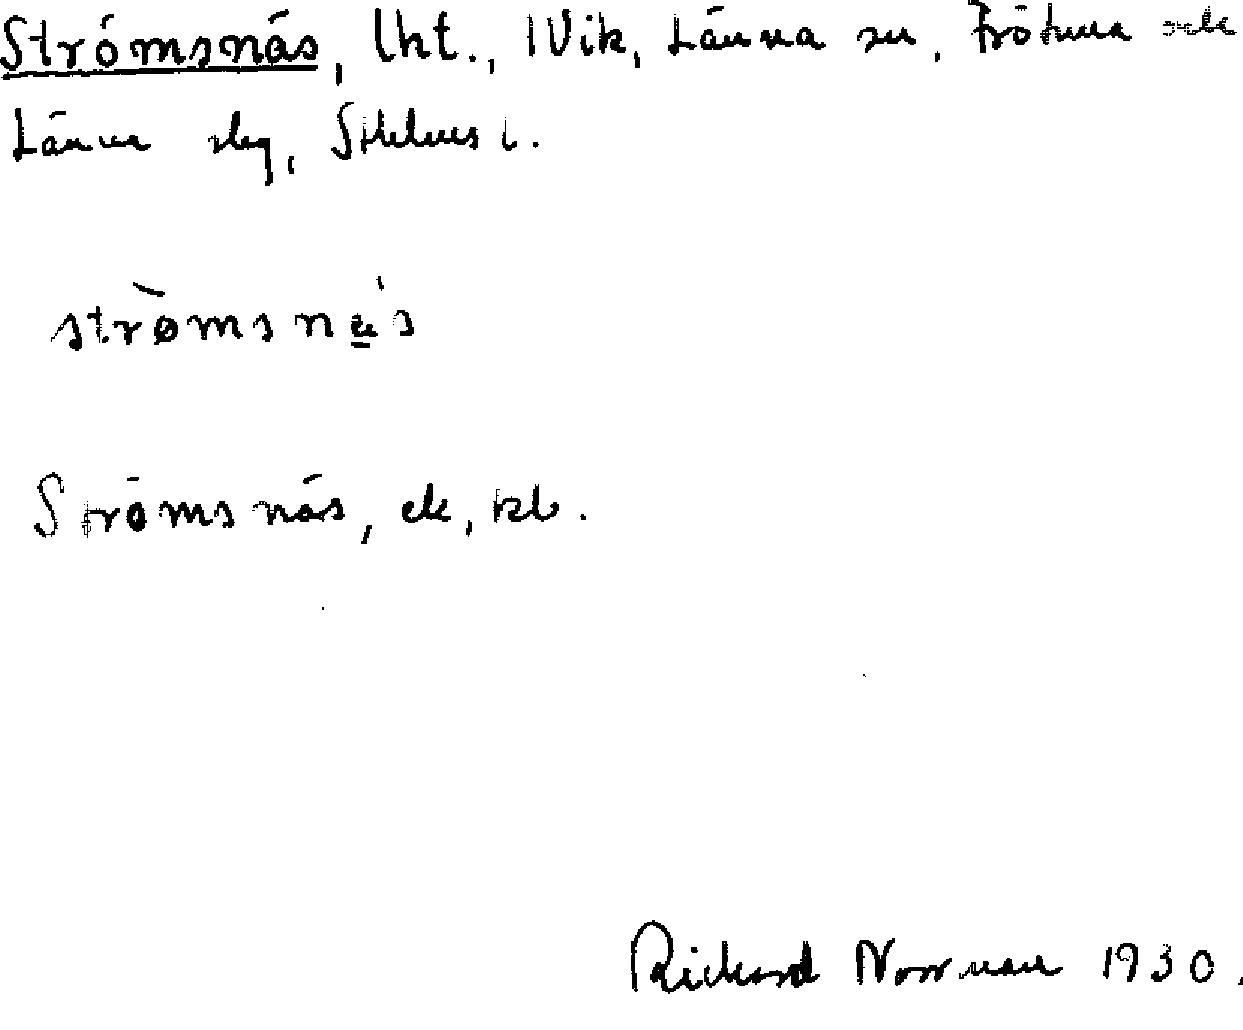 Strömsnäs, lht., 1 Vik, Länna sn, Frötuna och
Länna slg, Sthlms l.
strø̀msnæ̀s
Strömsnäs, ek, kb.
Rickard Norrman 1930.